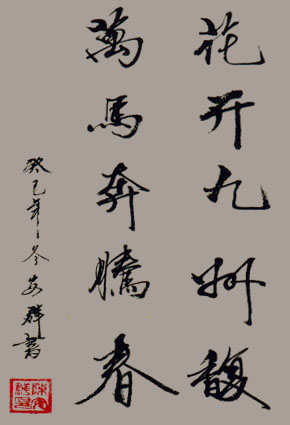 花开九州馥
萬馬奔騰春
癸巳年冬安群書